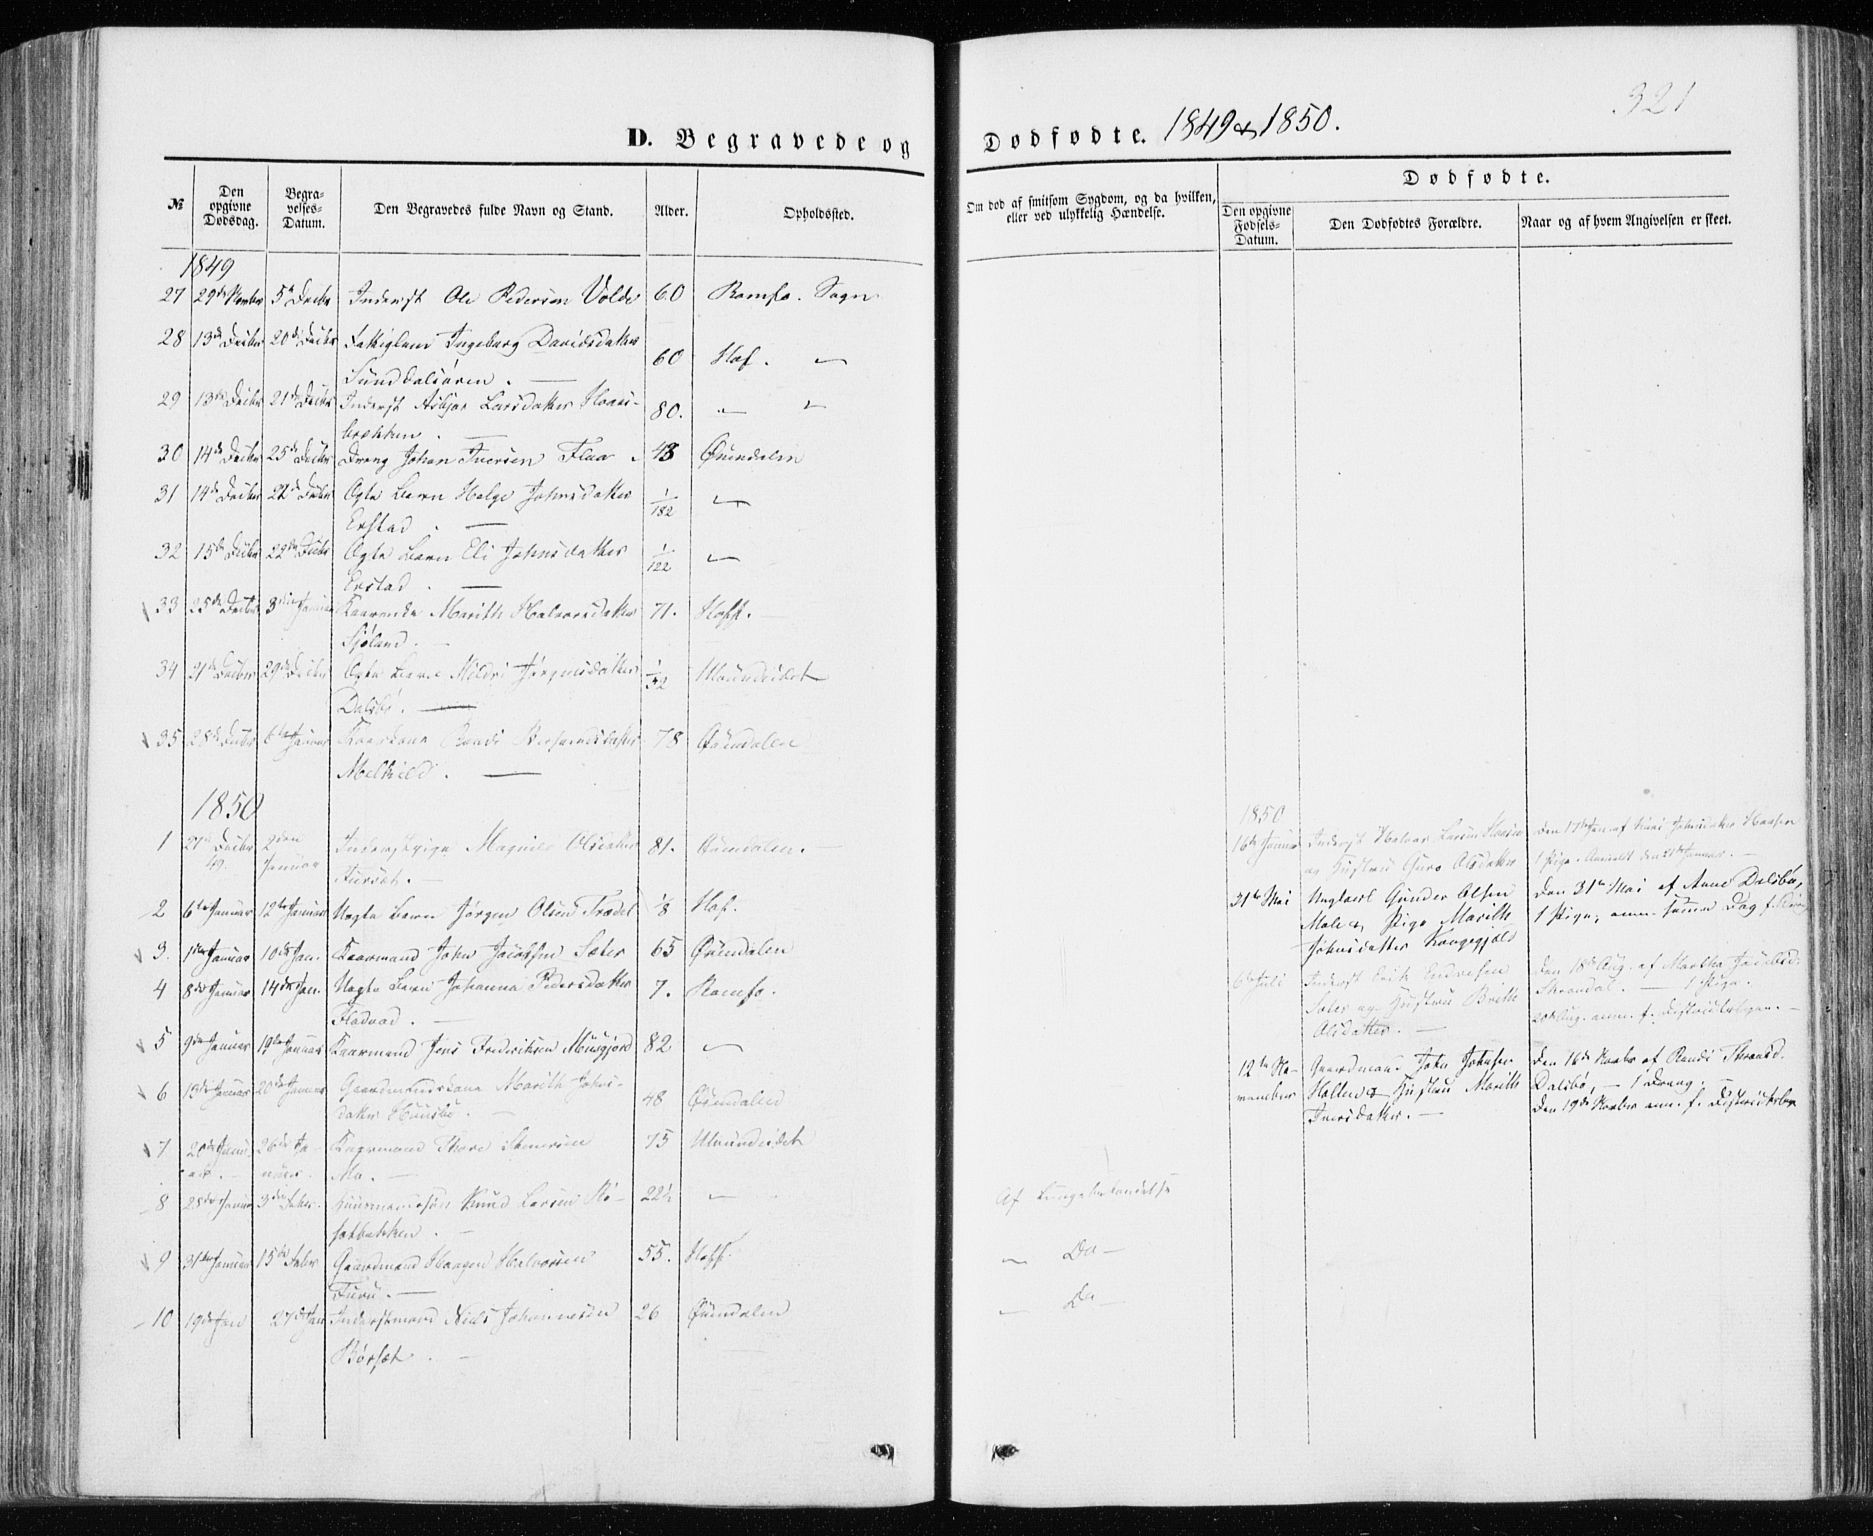 321
D. Begravede og Dødfødte. 1849 & 1850.
№
Den opgivne Dødsdag.
Begravelses-Datum.
Den Begravedes fulde Navn og Stand.
Alder.
Opholdssted.
Om død af smitsom Sygdom, og da hvilken, eller ved ulykkelig Hændelse.
Dødfødte.
Den opgivne Fødsels-Datum.
Den Dødfødtes Forældre.
Naar og af hvem Angivelsen er skeet.
1849
27 29de Novbr 5te Decbr Inderst Ole Pedersen Volde 60 Romfo. Sogn
28 13de Decbr 20de Decbr Fattiglem Ingeborg Davidsdatter
Sunddalsøren. — 60 Hof. "
29 13de Decbr 21de Decbr Inderst Larsdatter
80. " "
30 14de Decbr 25de Decbr Dreng Johan Iversen Flaa 48 Øxendalen
31 14de Decbr 22de Decbr Ægte Barn Helge Johnsdatter 1/182 "
Erstad. —
32 15de Decbr 22de Decbr Ægte Barn Eli Johnsdatter 1/122 "
Erstad. —
33 25de Decbr 3die Januar Marith Halvorsdatter 71. Hoff. —
Sjøland. —
34 21de Decbr 29de Decbr Ægte Barn Mildri Jørgensdatter 1/52 Ulvundeidet
Dalsbø. —
35 28de Decbr 6te Januar Kaarkone Randi 78 Øxendalen
—
1850
1 27de Decbr 49. 2den Januar Inderstpige Magnild Olsdatter 81. Øxendalen. —
Furset. —
2 6te Januar 12te Januar Uægte Barn Jørgen Olsen Trædel 1/8 Hof.
3. 1ste Januar 10de Jan. Kaarmand John Jacobsen Sæter 65 Øxendalen
4 8de Januar 14de Jan. Uægte Barn Johanna Pedersdatter 7. Romfo.
Fladvad. —
5 9de Januar 19de Januar Kaarmand Jens Frederiksen Musgjerd 82 "
6 13de Januar 20de Januar Gaardmandskone Marith Johns-
datter Huusby. — 48 Øxendalen
7 20de Januar. 26de Januar. Kaarmand Thore Steners 75 Ulvundeidet
Mo. —
8 28de Januar 3die Febr. Huusmandssøn Knud Larsen 22½ " Af Lungebetændelse
9 31te Januar 15de Febr Gaardmand Haagen Halvorsen 55. Hoff. " Do —
Furu. —
10 19de Jan 27de Jan Inderstmand Niels Johannesen 26 Øxendalen " Do —
Børset. —
1850
16de Januar Inderst Halvor Larsen
og Hustru Guro Olsdatter
den 17de Jan. af Kari Johnsdatter
1 Pige. Anmeldt den 21de Januar. —
31te Mai Ungkarl Gunder Olsen
Mele & Pige Marith
Johnsdatter Kongsgjeld
Den 31te Mai af Anne Dalsbø,
1 Pige, anm. samme Dag
6te Juli Inderst Erik Endresen
Sæter og Hustru Brith
Olsdatter. —
Den 18de Aug. af Martha Jacobsd.
— 1 Pige.
20de Aug. anm. f. —
12te November Gaardmand John Johnsen
Hollen & Hustru Marith
Iversdatter. —
Den 16de Novbr af Randi
Dalsbø, — 1 Dreng. —
Den 19de Novbr anm. f.